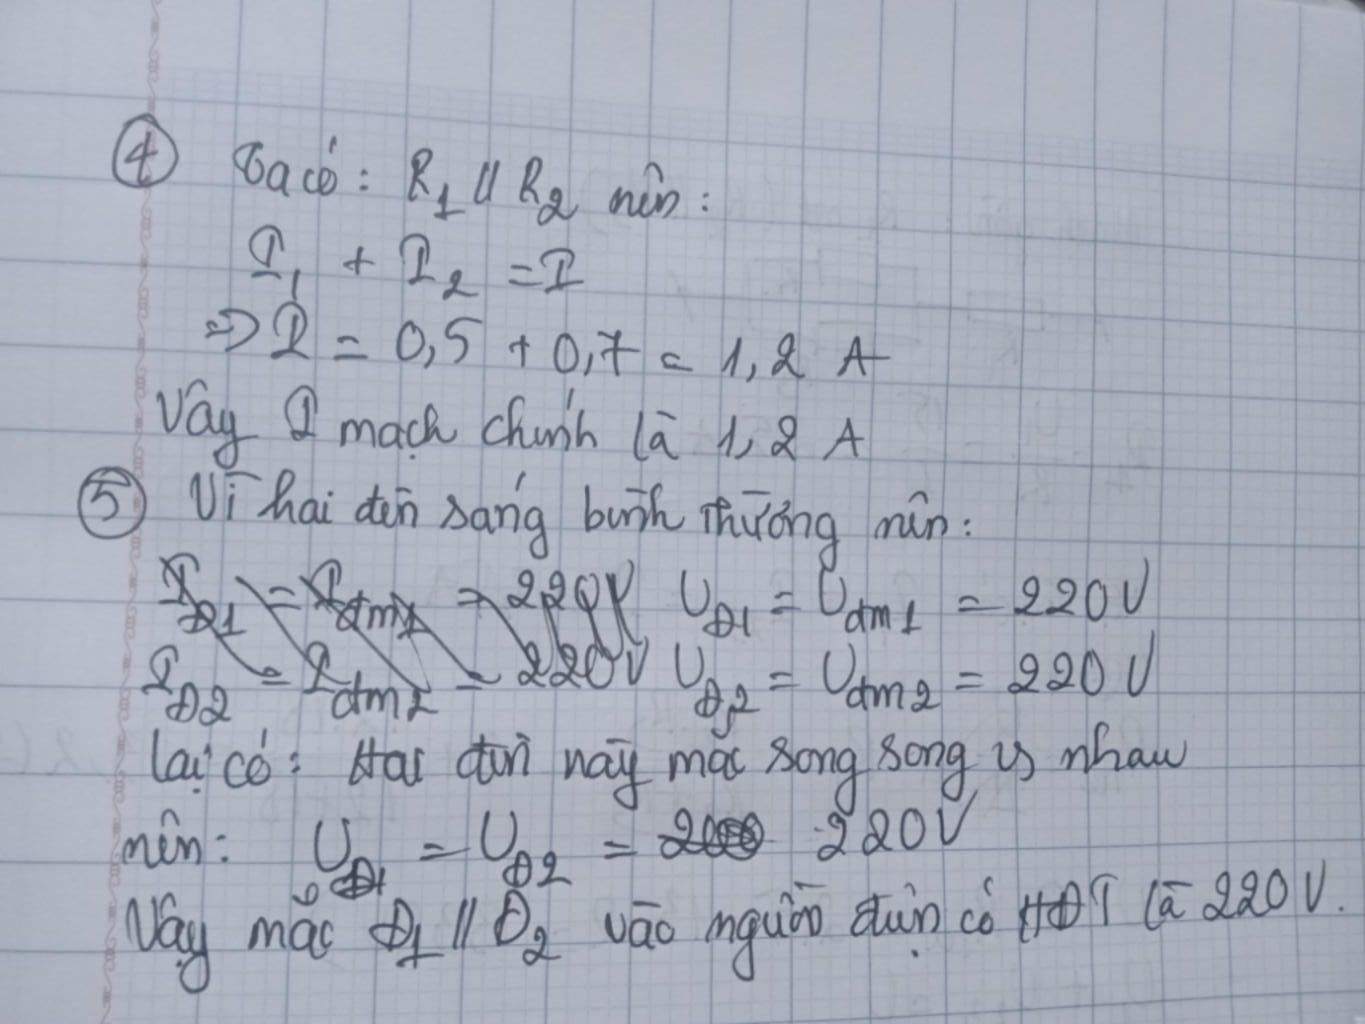 ④ Ta có: R₁ // R₂ nên:
I₁ + I₂ = I
=> I = 0,5 + 0,7 = 1,2 A
Vậy I mạch chính là 1,2 A
⑤ Vì hai đèn sáng bình thường nên:
I_Đ1 = I_đm1 = 220V U_Đ1 = U_đm1 = 220V
I_Đ2 = I_đm2 = 220V U_Đ2 = U_đm2 = 220V
Lại có: Hai đèn này mắc song song vs nhau
nên: U_Đ1 = U_Đ2 = 220V
Vậy mắc Đ₁ // Đ₂ vào nguồn điện có HĐT là 220V.